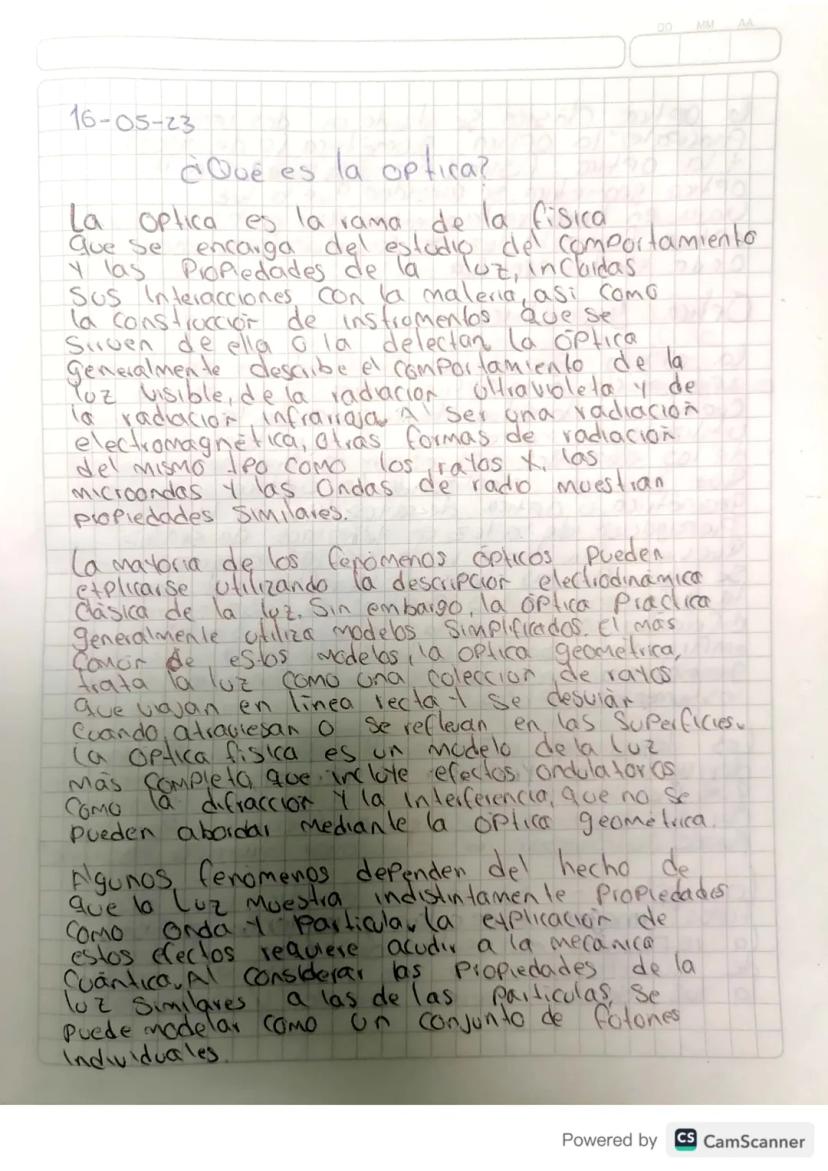 DD MM AA
16-05-23
¿Qué es la optica?
La optica es la rama de la física
que se encarga del estudio del comportamiento
y las Propiedades de la luz, incluidas
sus interacciones con la materia, asi como
la construcción de instrumentos que se
sirven de ella o la detectan la óptica
generalmente describe el comportamiento de la
luz visible, de la radiación ultravioleta y de
la radiación infrarroja Al ser una radiación
electromagnética, otras formas de radiación
del mismo tipo como los rayos x, las
microondas y las ondas de radio muestran
propiedades similares.
La mayoria de los fenómenos ópticos pueden
explicarse utilizando la descripción electrodinámica
clásica de la luz. Sin embargo, la óptica Practica
generalmente utiliza modelos simplificados. El mas
común de estos modelos, la optica geométrica,
trata la luz como una coleccion de rayos
que viajan en línea recta y se desvían
cuando atraviesan o se reflejan en las superficies.
La optica física es un modelo de la luz
más completo, que incluye efectos ondulatorios
como la difracción y la interferencia, que no se
pueden abordar mediante la optica geométrica.
Algunos fenomenos dependen del hecho de
que la luz muestra indistintamente Propiedades
como onda y particula, la explicación de
estos efectos requiere acudir a la mecánica
cuántica. Al considerar las Propiedades de la
luz similares a las de las particulas, se
puede modelar como un conjunto de fotones
individuales.
Powered by CS CamScanner